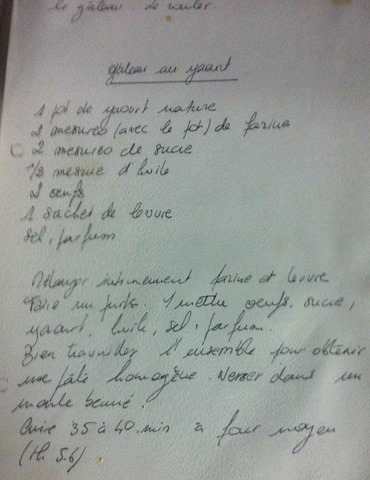 le gâteau. Le
Gâteau au yaourt
1 pot de yaourt nature
2 mesures (avec le pot) de farine
2 mesures de sucre
1/2 mesure d'huile
2 œufs
1 sachet de levure
sel, parfum
Mélanger intimement farine et levure
Faire un puits. Y mettre œufs, sucre,
yaourt, huile, sel, parfum.
Bien travailler l'ensemble pour obtenir
une pâte homogène. Verser dans un
moule beurré.
Cuire 35 à 40 min à four moyen
(th 5.6).